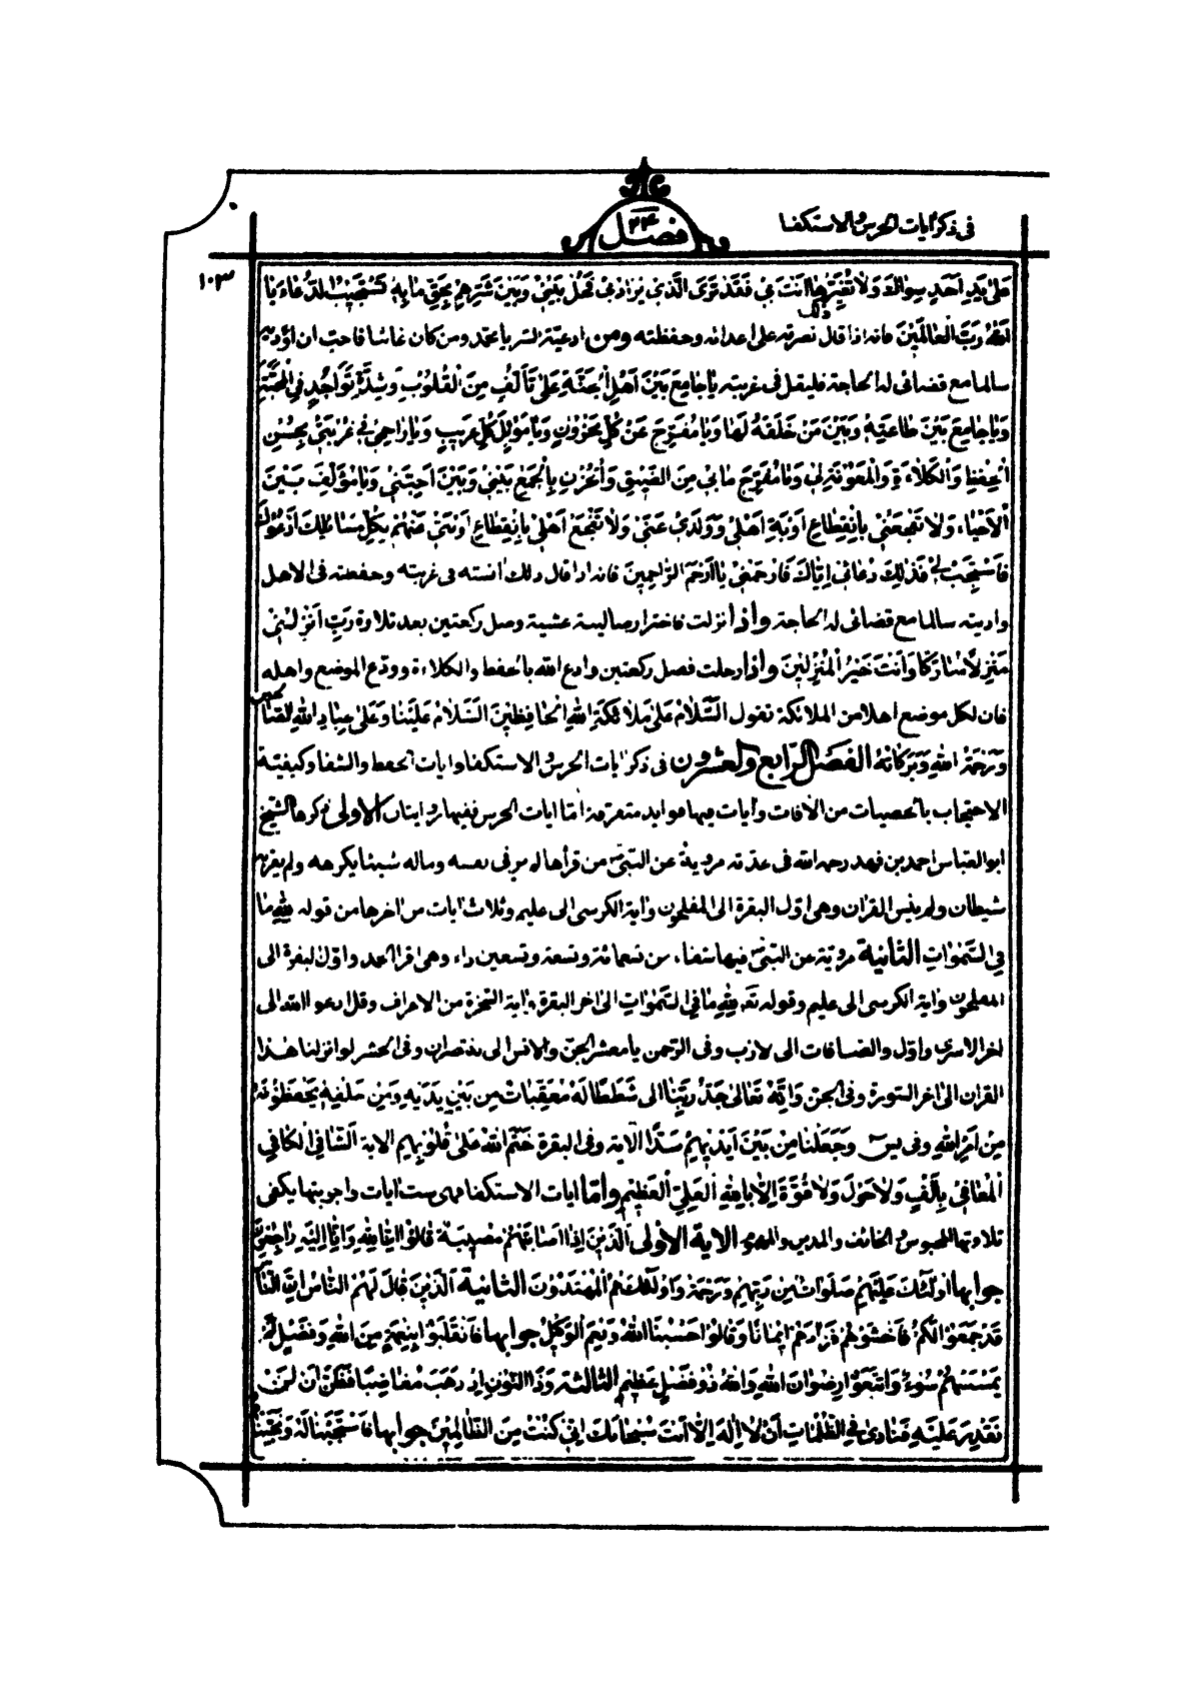 في ذكر ايات الحرس والاستكفا
فصل ٢٤
١٠٣
عَلى يَدِ اَحَدٍ سِواكَ وَلا تُغَيِّرْها اَنْتَ بي فَقَدْ تَرَى الَّذي يُرادُ بي فَحُلْ بَيْني وَبَيْنَ شَرِّهِمْ بِحَقِّ ما بِهِ تَسْتَجيبُ الدُّعاءَ يا
اَللهُ رَبَّ الْعالَمينَ فانه اذا قال ذلك نصرته على اعدائه وحفظته ومن ادعية السر يا محمد ومن كان غائبا فاحب ان اؤديه
سالما مع قضائى له الحاجة فليقل فى غربته يا جامِعَ بَيْنَ اَهْلِ الْجَنَّةِ عَلى تَأَلُّفٍ مِنَ الْقُلُوبِ وَشِدَّةِ تَواجُدٍ فِي الْمَحَبَّةِ
وَيا جامِعَ بَيْنَ طاعَتِهِ وَبَيْنَ مَنْ خَلَقَهُ لَها وَيا مُفَرِّجَ عَنْ كُلِّ مَحْزُونٍ وَيا مَوْئِلَ كُلِّ غَريبٍ وَيا راحِمي في غُرْبَتي بِحُسْنِ
الْحِفْظِ وَالْكَلاءَةِ وَالْمَعُونَةِ لي وَيا مُفَرِّجَ ما بي مِنَ الضّيقِ وَالْحُزْنِ بِالْجَمْعِ بَيْني وَبَيْنَ اَحِبَّتي وَيا مُؤَلِّفَ بَيْنَ
الْاَحِبّاءِ وَلا تَفْجَعْني بِانْقِطاعِ اَوْبَةِ اَهْلي وَوَلَدي عَنّي وَلا تَفْجَعْ اَهْلي بِانْقِطاعِ اَوْبَتي عَنْهُمْ بِكُلِّ مَسائِلِكَ اَدْعُوكَ
فَاسْتَجِبْ لي فَذلِكَ دُعائي اِيّاكَ فَارْحَمْني يا اَرْحَمَ الرّاحِمينَ فانه اذا قال ذلك انسته فى غربته وحفظته فى الاهل
واديته سالما مع قضائى له الحاجة واذا نزلت فاختر ارضا لينة عشيبة وصل ركعتين بعد تلاوة رَبِّ اَنْزِلْني
مُنْزَلًا مُبارَكًا وَاَنْتَ خَيْرُ الْمُنْزِلينَ واذا رحلت فصل ركعتين وادع الله بالحفظ والكلاءة وودّع الموضع واهله
فان لكل موضع اهلا من الملائكة تقول السَّلامُ عَلى مَلائِكَةِ اللهِ الْحافِظينَ السَّلامُ عَلَيْنا وَعَلى عِبادِ اللهِ الصّالحين
وَرَحْمَةُ اللهِ وَبَرَكاتُهُ الفصل الرابع والعشرون فى ذكر ايات الحرس والاستكفا وايات الحفظ والشفا وكيفية
الاحتجاب بالحصيات من الافات وايات فيها فوايد متفرقة امّا ايات الحرس ففيها روايتان الاولى ذكرها الشيخ
ابو العباس احمد بن فهد رحمه الله فى عدّته مروية عن النبىّ من قرأها لم ير فى نفسه وماله شيئا يكرهه ولم يقربه
شيطان ولم ينس القران وهى اول البقرة الى المفلحون واية الكرسى الى عليم وثلاث ايات من اخرها من قوله لِلّهِ ما
فِي السَّمواتِ الثانية مروية عن النبىّ فيها شفاء من تسعمائة وتسعة وتسعين داء وهى اقرا الحمد واول البقرة الى
المفلحون واية الكرسى الى عليم وقوله تَعَ لِلّهِ ما فِي السَّمواتِ الى اخر البقرة واية السخرة من الاعراف وقل ادعوا الله الى
اخر الاسرى واول والصافات الى لازب وفى الرحمن يا معشر الجن والانس الى تنتصران وفى الحشر لو انزلنا هذا
القران الى اخر السورة وفى الجن وَاَنَّهُ تَعالى جَدُّ رَبِّنا الى شَطَطًا لَهُ مُعَقِّباتٌ مِنْ بَيْنِ يَدَيْهِ وَمِنْ خَلْفِهِ يَحْفَظُونَهُ
مِنْ اَمْرِ اللهِ وفى يس وَجَعَلْنا مِنْ بَيْنِ اَيْديهِمْ سَدًّا الاية وفى البقرة خَتَمَ اللهُ عَلى قُلُوبِهِمْ الاية الشّافِي الْكافِي
الْمُعافي وَلا حَوْلَ وَلا قُوَّةَ اِلّا بِاللهِ الْعَلِيِّ الْعَظيمِ وامّا ايات الاستكفا فهى ست ايات واجوبتها يكفى
تلاوتها المحبوس والخائف والمدين والمهموم الاية الاولى الَّذينَ اِذا اَصابَتْهُمْ مُصيبَةٌ قالُوا اِنّا لِلّهِ وَاِنّا اِلَيْهِ راجِعُونَ
جوابها اُولئِكَ عَلَيْهِمْ صَلَواتٌ مِنْ رَبِّهِمْ وَرَحْمَةٌ وَاُولئِكَ هُمُ الْمُهْتَدُونَ الثانية اَلَّذينَ قالَ لَهُمُ النّاسُ اِنَّ النّاسَ
قَدْ جَمَعُوا لَكُمْ فَاخْشَوْهُمْ فَزادَهُمْ ايمانًا وَقالُوا حَسْبُنَا اللهُ وَنِعْمَ الْوَكيلُ جوابها فَانْقَلَبُوا بِنِعْمَةٍ مِنَ اللهِ وَفَضْلٍ لَمْ
يَمْسَسْهُمْ سُوءٌ وَاتَّبَعُوا رِضْوانَ اللهِ وَاللهُ ذُو فَضْلٍ عَظيمٍ الثالثة وَذَا النُّونِ اِذْ ذَهَبَ مُغاضِبًا فَظَنَّ اَنْ لَنْ
نَقْدِرَ عَلَيْهِ فَنادى فِي الظُّلُماتِ اَنْ لا اِلهَ اِلّا اَنْتَ سُبْحانَكَ اِنّي كُنْتُ مِنَ الظّالِمينَ جوابها فَاسْتَجَبْنا لَهُ وَنَجَّيْناهُ